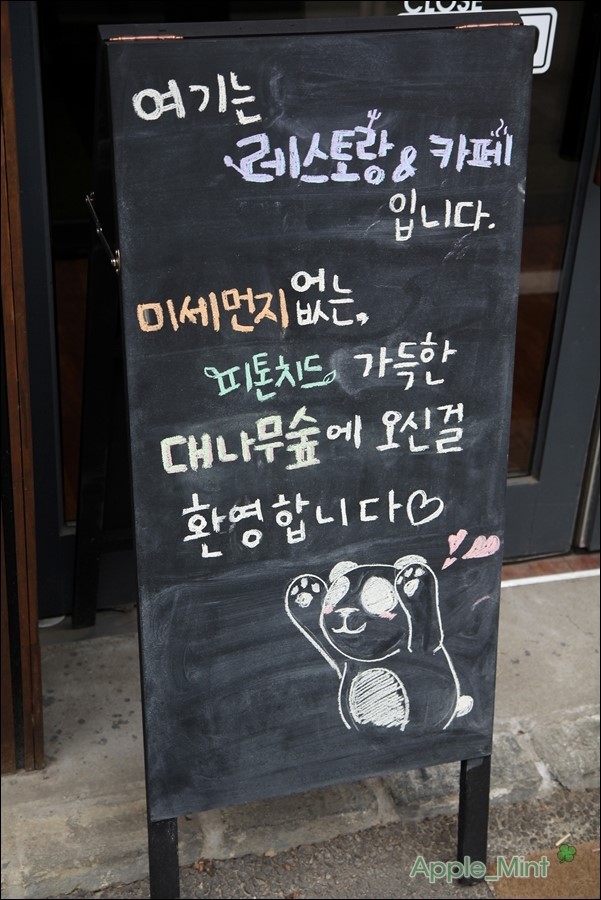 CLOSE
여기는
레스토랑 & 카페
입니다.
미세먼지 없는,
피톤치드 가득한
대나무숲에 오신걸
환영합니다♡
Apple_Mint